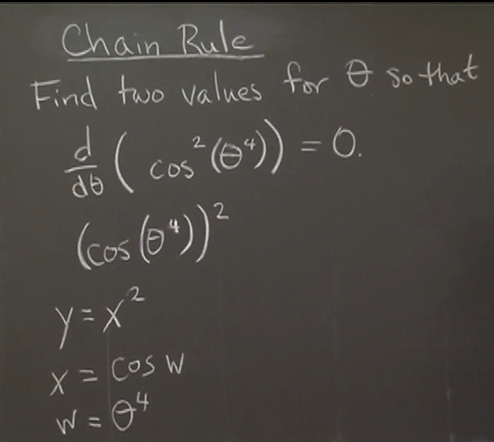 Chain Rule
Find two values for θ so that
d/dθ ( cos²(θ⁴)) = 0.
(cos(θ⁴))²
y = x²
x = cos w
w = θ⁴